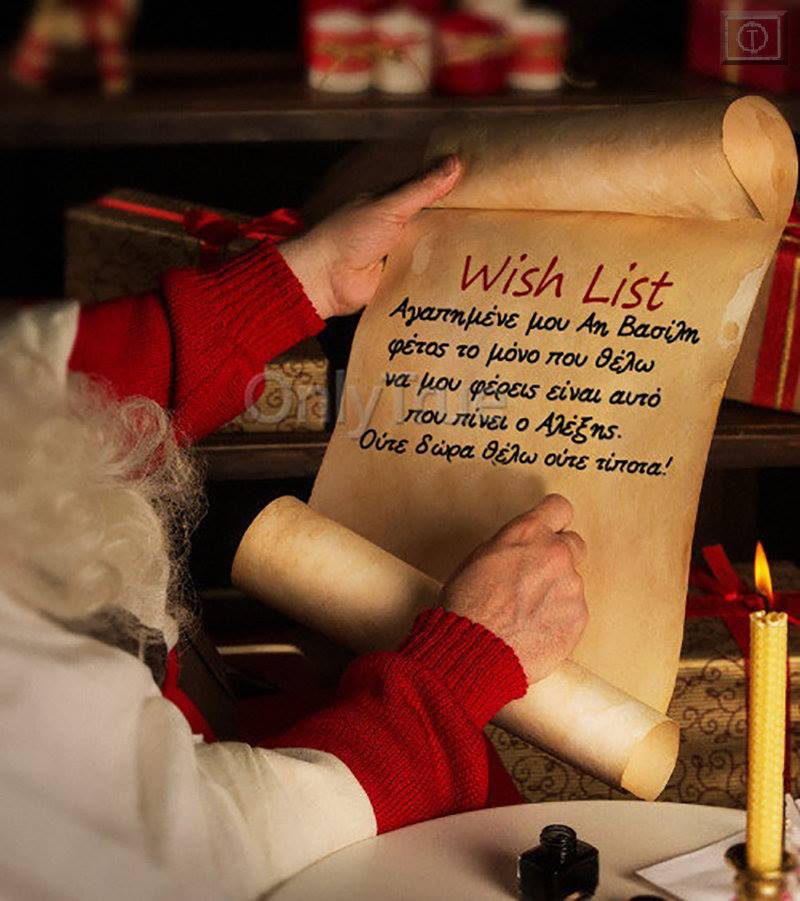 Wish List
Αγαπημένε μου Αη Βασίλη
φέτος το μόνο που θέλω
να μου φέρεις είναι αυτό
που πίνει ο Αλέξης.
Ούτε δώρα θέλω ούτε τίποτα!
OnlyTrue
T